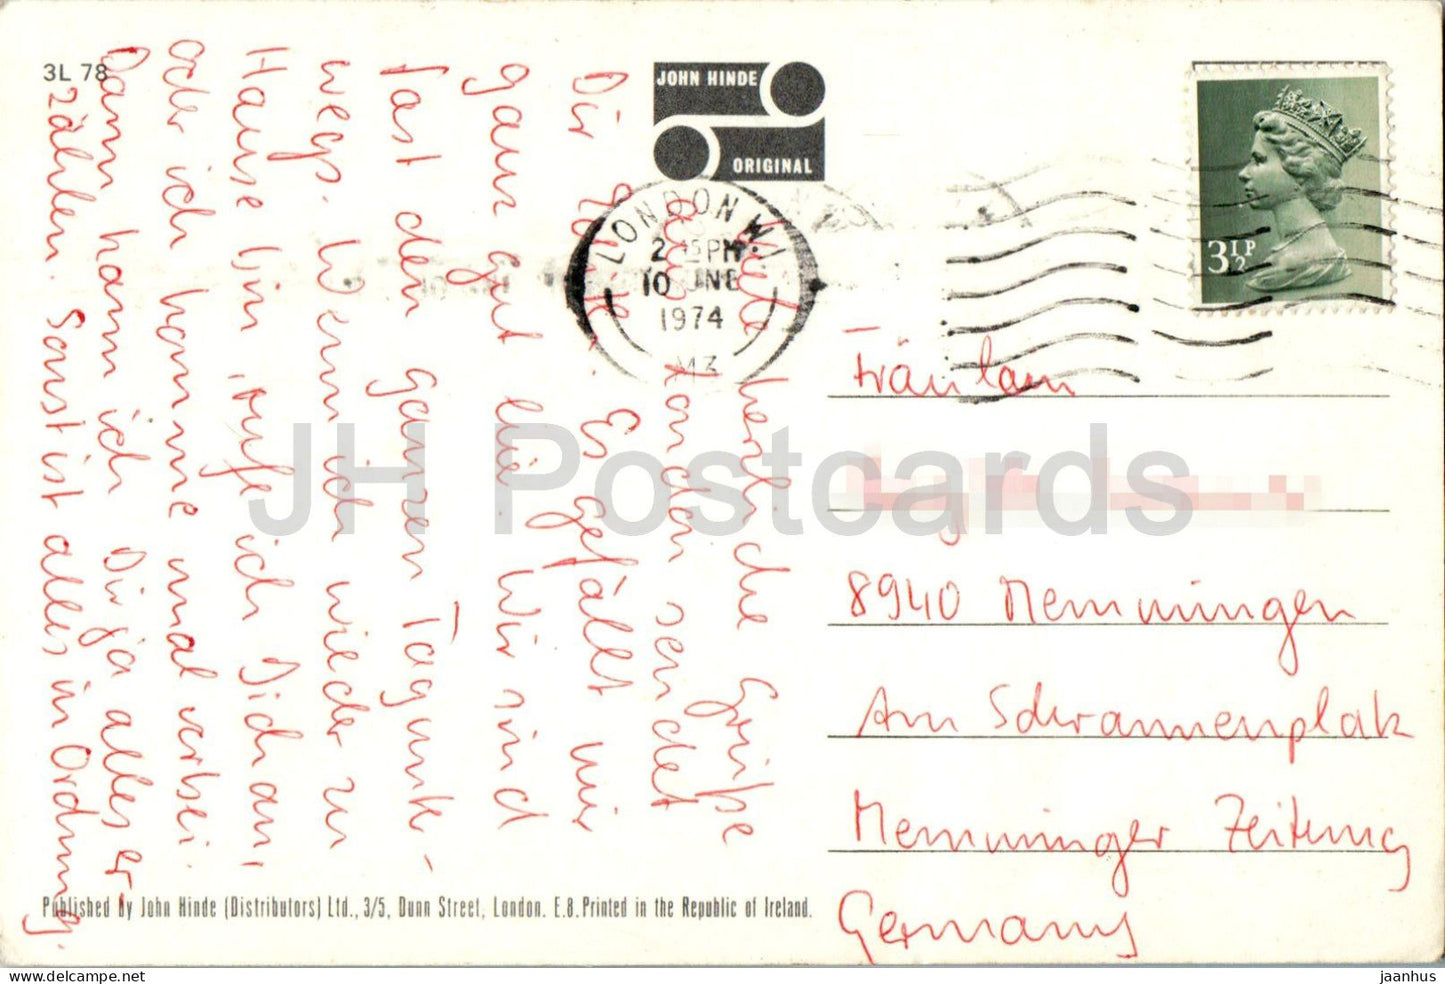 3L 78
JOHN HINDE
ORIGINAL
LONDON W.1
2 15 PM
10 JNE
1974
3½P
Viele herzliche Grüße
aus London sendet
Dir
Es gefällt mir
ganz gut hier. Wir sind
fast den ganzen Tag unter-
wegs. Wenn ich wieder zu
Hause bin, rufe ich Dich an,
oder ich komme mal vorbei.
Dann kann ich Dir ja alles er-
zählen. Sonst ist alles in Ordnung.
Fräulein
8940 Memmingen
Am Schrannenplatz
Memminger Zeitung
Germany
Published by John Hinde (Distributors) Ltd., 3/5, Dunn Street, London. E.8. Printed in the Republic of Ireland.
JH Postcards
jaanhus | delcampe.net